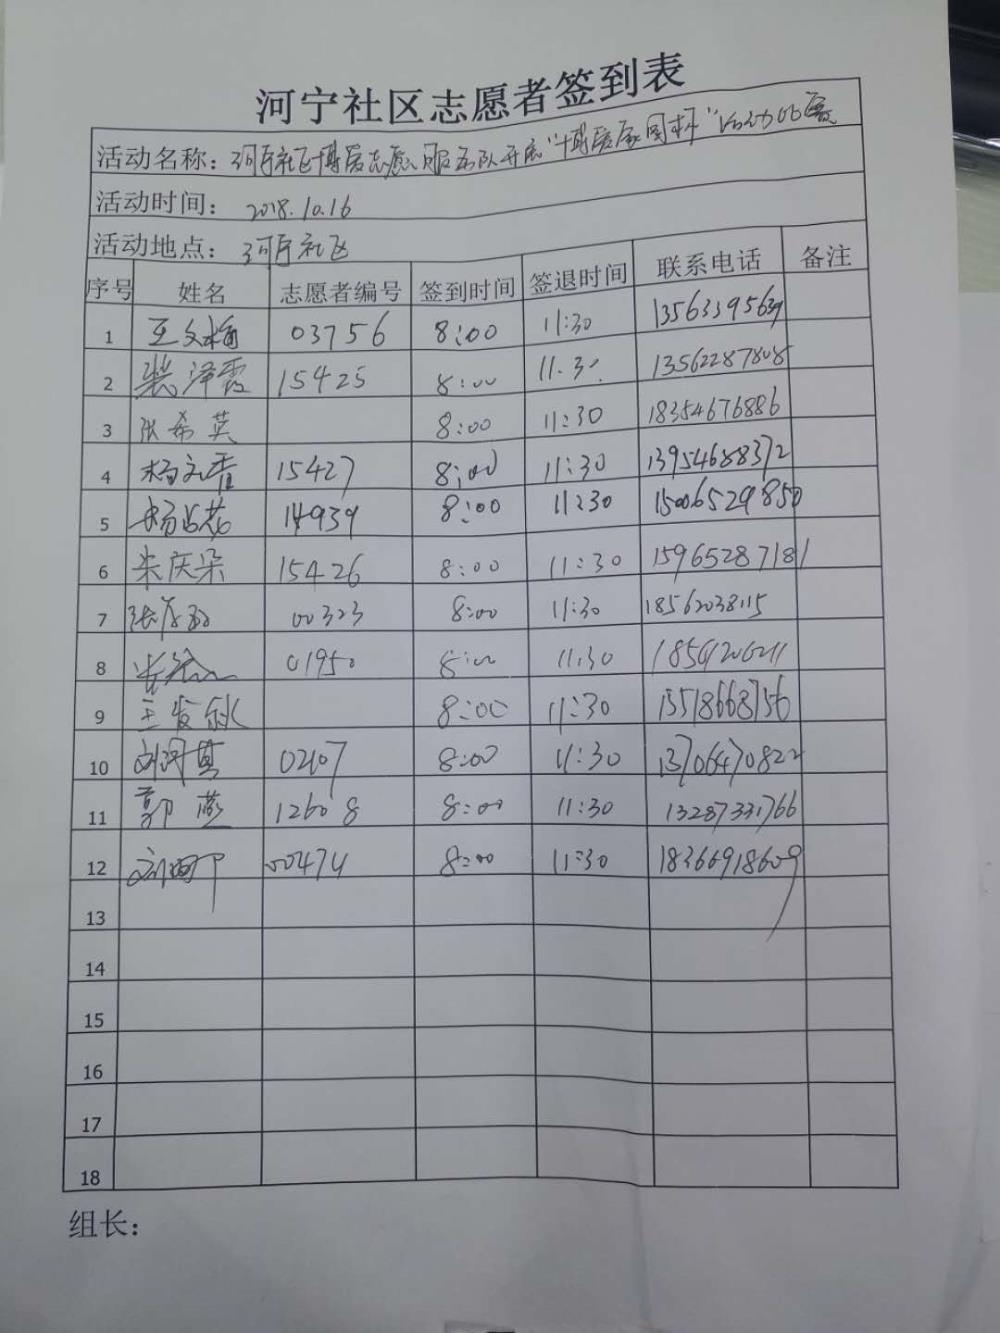 河宁社区志愿者签到表
活动名称：河宁社区博爱志愿服务队开展"博爱家园杯"活动
活动时间： 2018.10.16
活动地点： 河宁社区
序号 姓名 志愿者编号 签到时间 签退时间 联系电话 备注
1 王文梅 03756 8:00 11:30 13563395639
2 裴泽霞 15425 8:00 11:30 13562287808
3 张希英 8:00 11:30 18354676886
4 杨文香 15427 8:00 11:30 13954688372
5 杨占花 14939 8:00 11:30 15006529850
6 朱庆朵 15426 8:00 11:30 15965287181
7 00323 8:00 11:30 18562038115
8 01950 8:00 11:30
9 王发秋 8:00 11:30 15518668756
10 刘河真 02107 8:00 11:30 13706470822
11 郭燕 12608 8:00 11:30 13287331766
12 00474 8:00 11:30 18366918609
13
14
15
16
17
18
组长：